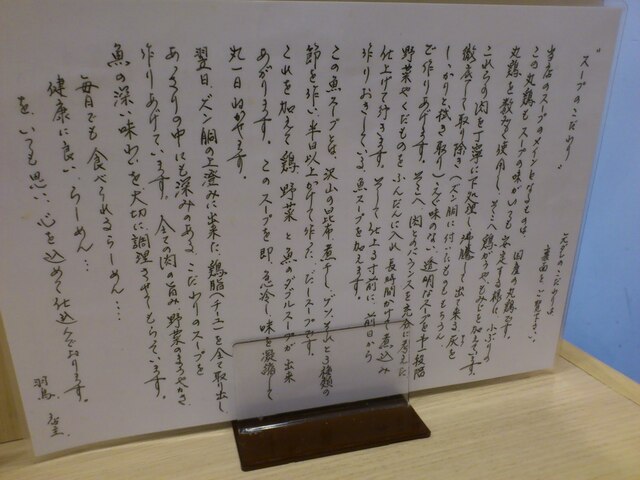 "スープのこだわり"
元ダレのこだわりは
裏面をご覧下さい。
当店のスープのメインとなるものは、国産の丸鶏です。
この丸鶏もスープの味がいつも安定する様に、小ぶりの
丸鶏を数多く使用し、そこへ鶏ガラやもみじを加えています。
これらの肉を丁寧に下処理し沸騰して出来る灰を
徹底して取り除き(ズン胴に付いたものももちろん
しっかりと拭き取り)えぐ味のない透明なスープを予備段階
で作りあげます。そこへ肉とのバランスを充分に考えた
野菜やくだものをふんだんに入れ長時間かけて煮込み
仕上げて行きます。そして仕上る寸前に、前日から
作りおきしている魚スープを加えます。
この魚スープとは、沢山の昆布、煮干し、ゲソ、それと3種類の
節を使い半日以上かけて作った、だしスープです。
これを加えて鶏、野菜と魚のダブルスープが出来
あがります。このスープを即、急冷し味を凝縮して
丸一日ねかせます。
翌日、ズン胴の上澄みに出来た、鶏脂(チーユ)を全て取出し
あっさりの中にも深みのある、こだわりのスープを
作りあげています。全ての肉の旨み野菜のまろやかさ
魚の深い味わいを大切に調理させてもらっています。
毎日でも食べられるらーめん…
健康に良いらーめん…
を、いつも思い、心を込めて仕込んでおります。